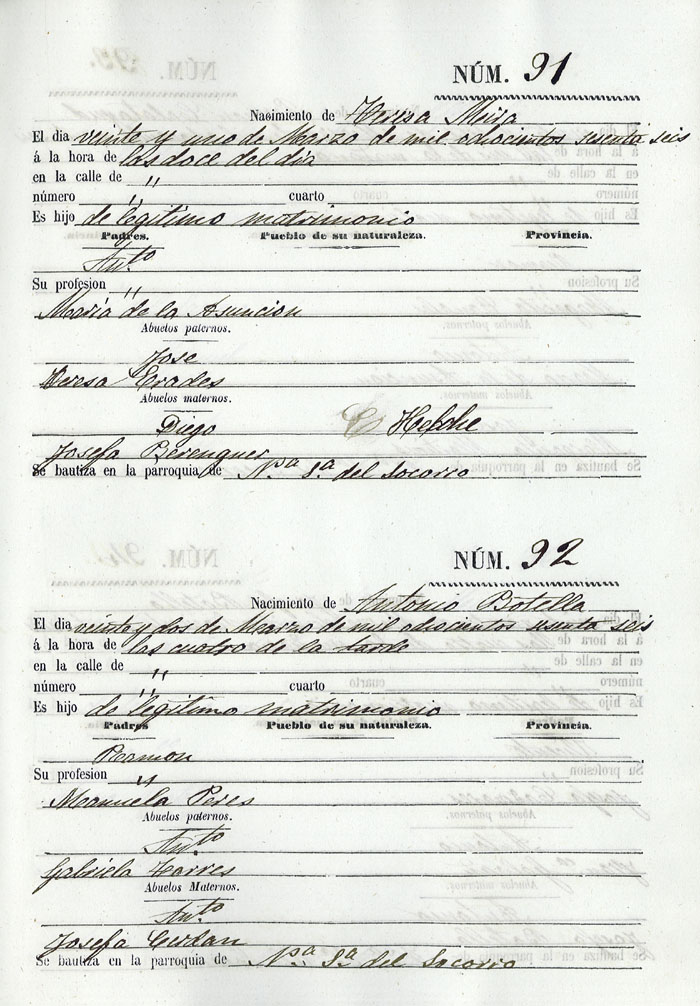 NÚM. 91
Nacimiento de Teresa Mira
El dia veinte y uno de Marzo de mil ochocientos sesenta seis
á la hora de las doce del dia
en la calle de "
número " cuarto
Es hijo de legitimo matrimonio
Padres. Pueblo de su naturaleza. Provincia.
Anto.
Su profesion "
Maria de la Asuncion
Abuelos paternos.
Jose
Teresa Erades
Abuelos maternos.
Diego
Josefa Berenguer
Se bautiza en la parroquia de Na. Sa. del Socorro
NÚM. 92
Nacimiento de Antonio Botella
El dia veinte y dos de Marzo de mil ochocientos sesenta seis
á la hora de las cuatro de la tarde
en la calle de "
número " cuarto
Es hijo de legitimo matrimonio
Padres Pueblo de su naturaleza. Provincia.
Ramon
Su profesion "
Manuela Peres
Abuelos paternos.
Anto.
Gabriela Torres
Abuelos Maternos.
Anto.
Josefa Cerdan
Se bautiza en la parroquia de Na. Sa. del Socorro